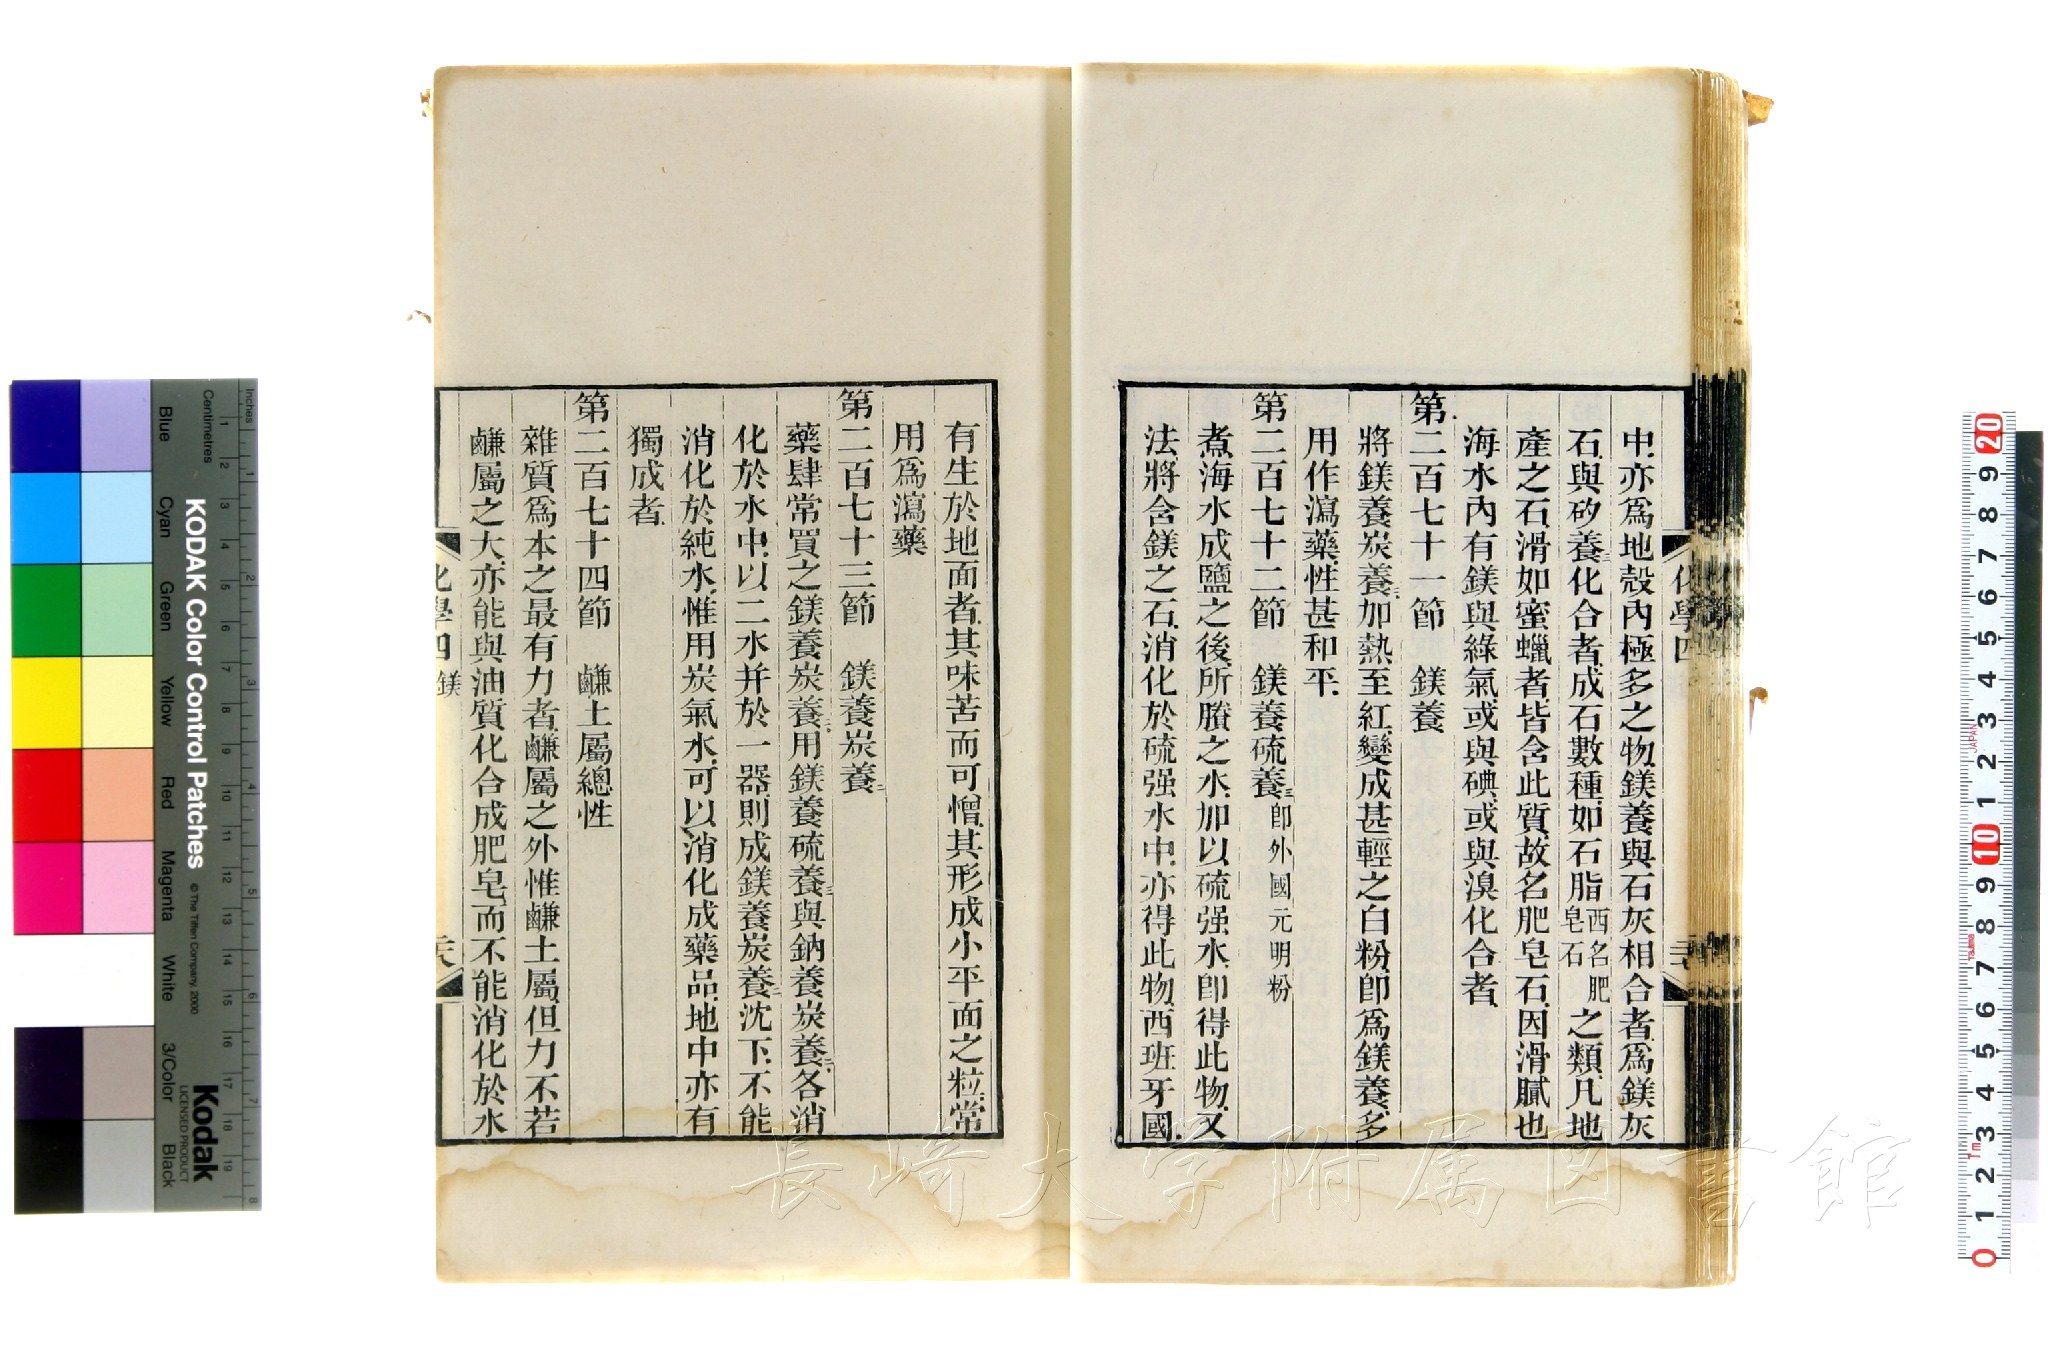 中亦爲地殼內極多之物鎂養與石灰相合者爲鎂灰
石與矽養三化合者成石數種如石脂西名肥皂石之類凡地
產之石滑如蜜蠟者皆含此質故名肥皂石因滑膩也
海水內有鎂與綠氣或與碘或與溴化合者
第二百七十一節　鎂養
將鎂養炭養二加熱至紅變成甚輕之白粉卽爲鎂養多
用作瀉藥性甚和平
第二百七十二節　鎂養硫養三卽外國元明粉
煮海水成鹽之後所賸之水加以硫强水卽得此物又
法將含鎂之石消化於硫强水中亦得此物西班牙國
有生於地面者其味苦而可憎其形成小平面之粒常
用爲瀉藥
第二百七十三節　鎂養炭養二
藥肆常買之鎂養炭養二用鎂養硫養三與鈉養炭養二各消
化於水中以二水并於一器則成鎂養炭養二沈下不能
消化於純水惟用炭氣水可以消化成藥品地中亦有
獨成者
第二百七十四節　鹻土屬總性
雜質爲本之最有力者鹻屬之外惟鹻土屬但力不若
鹻屬之大亦能與油質化合成肥皂而不能消化於水
化學四 鎂
KODAK Color Control Patches
©The Tiffen Company, 2000
Kodak
LICENSED PRODUCT
Inches
Centimetres
Blue
Cyan
Green
Yellow
Red
Magenta
White
3/Color
Black
長崎大学附属図書館
JAPAN